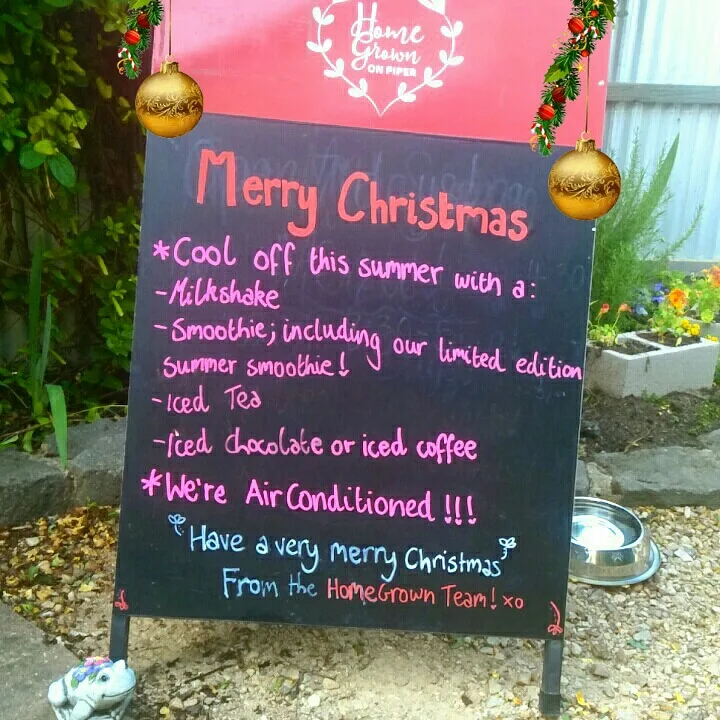 Home
Grown
ON PIPER
Merry Christmas
*Cool off this summer with a:
-Milkshake
-Smoothie; including our limited edition
summer smoothie!
-Iced Tea
-Iced chocolate or iced coffee
*We're Air Conditioned !!!
Have a very merry Christmas
From the HomeGrown Team! xo